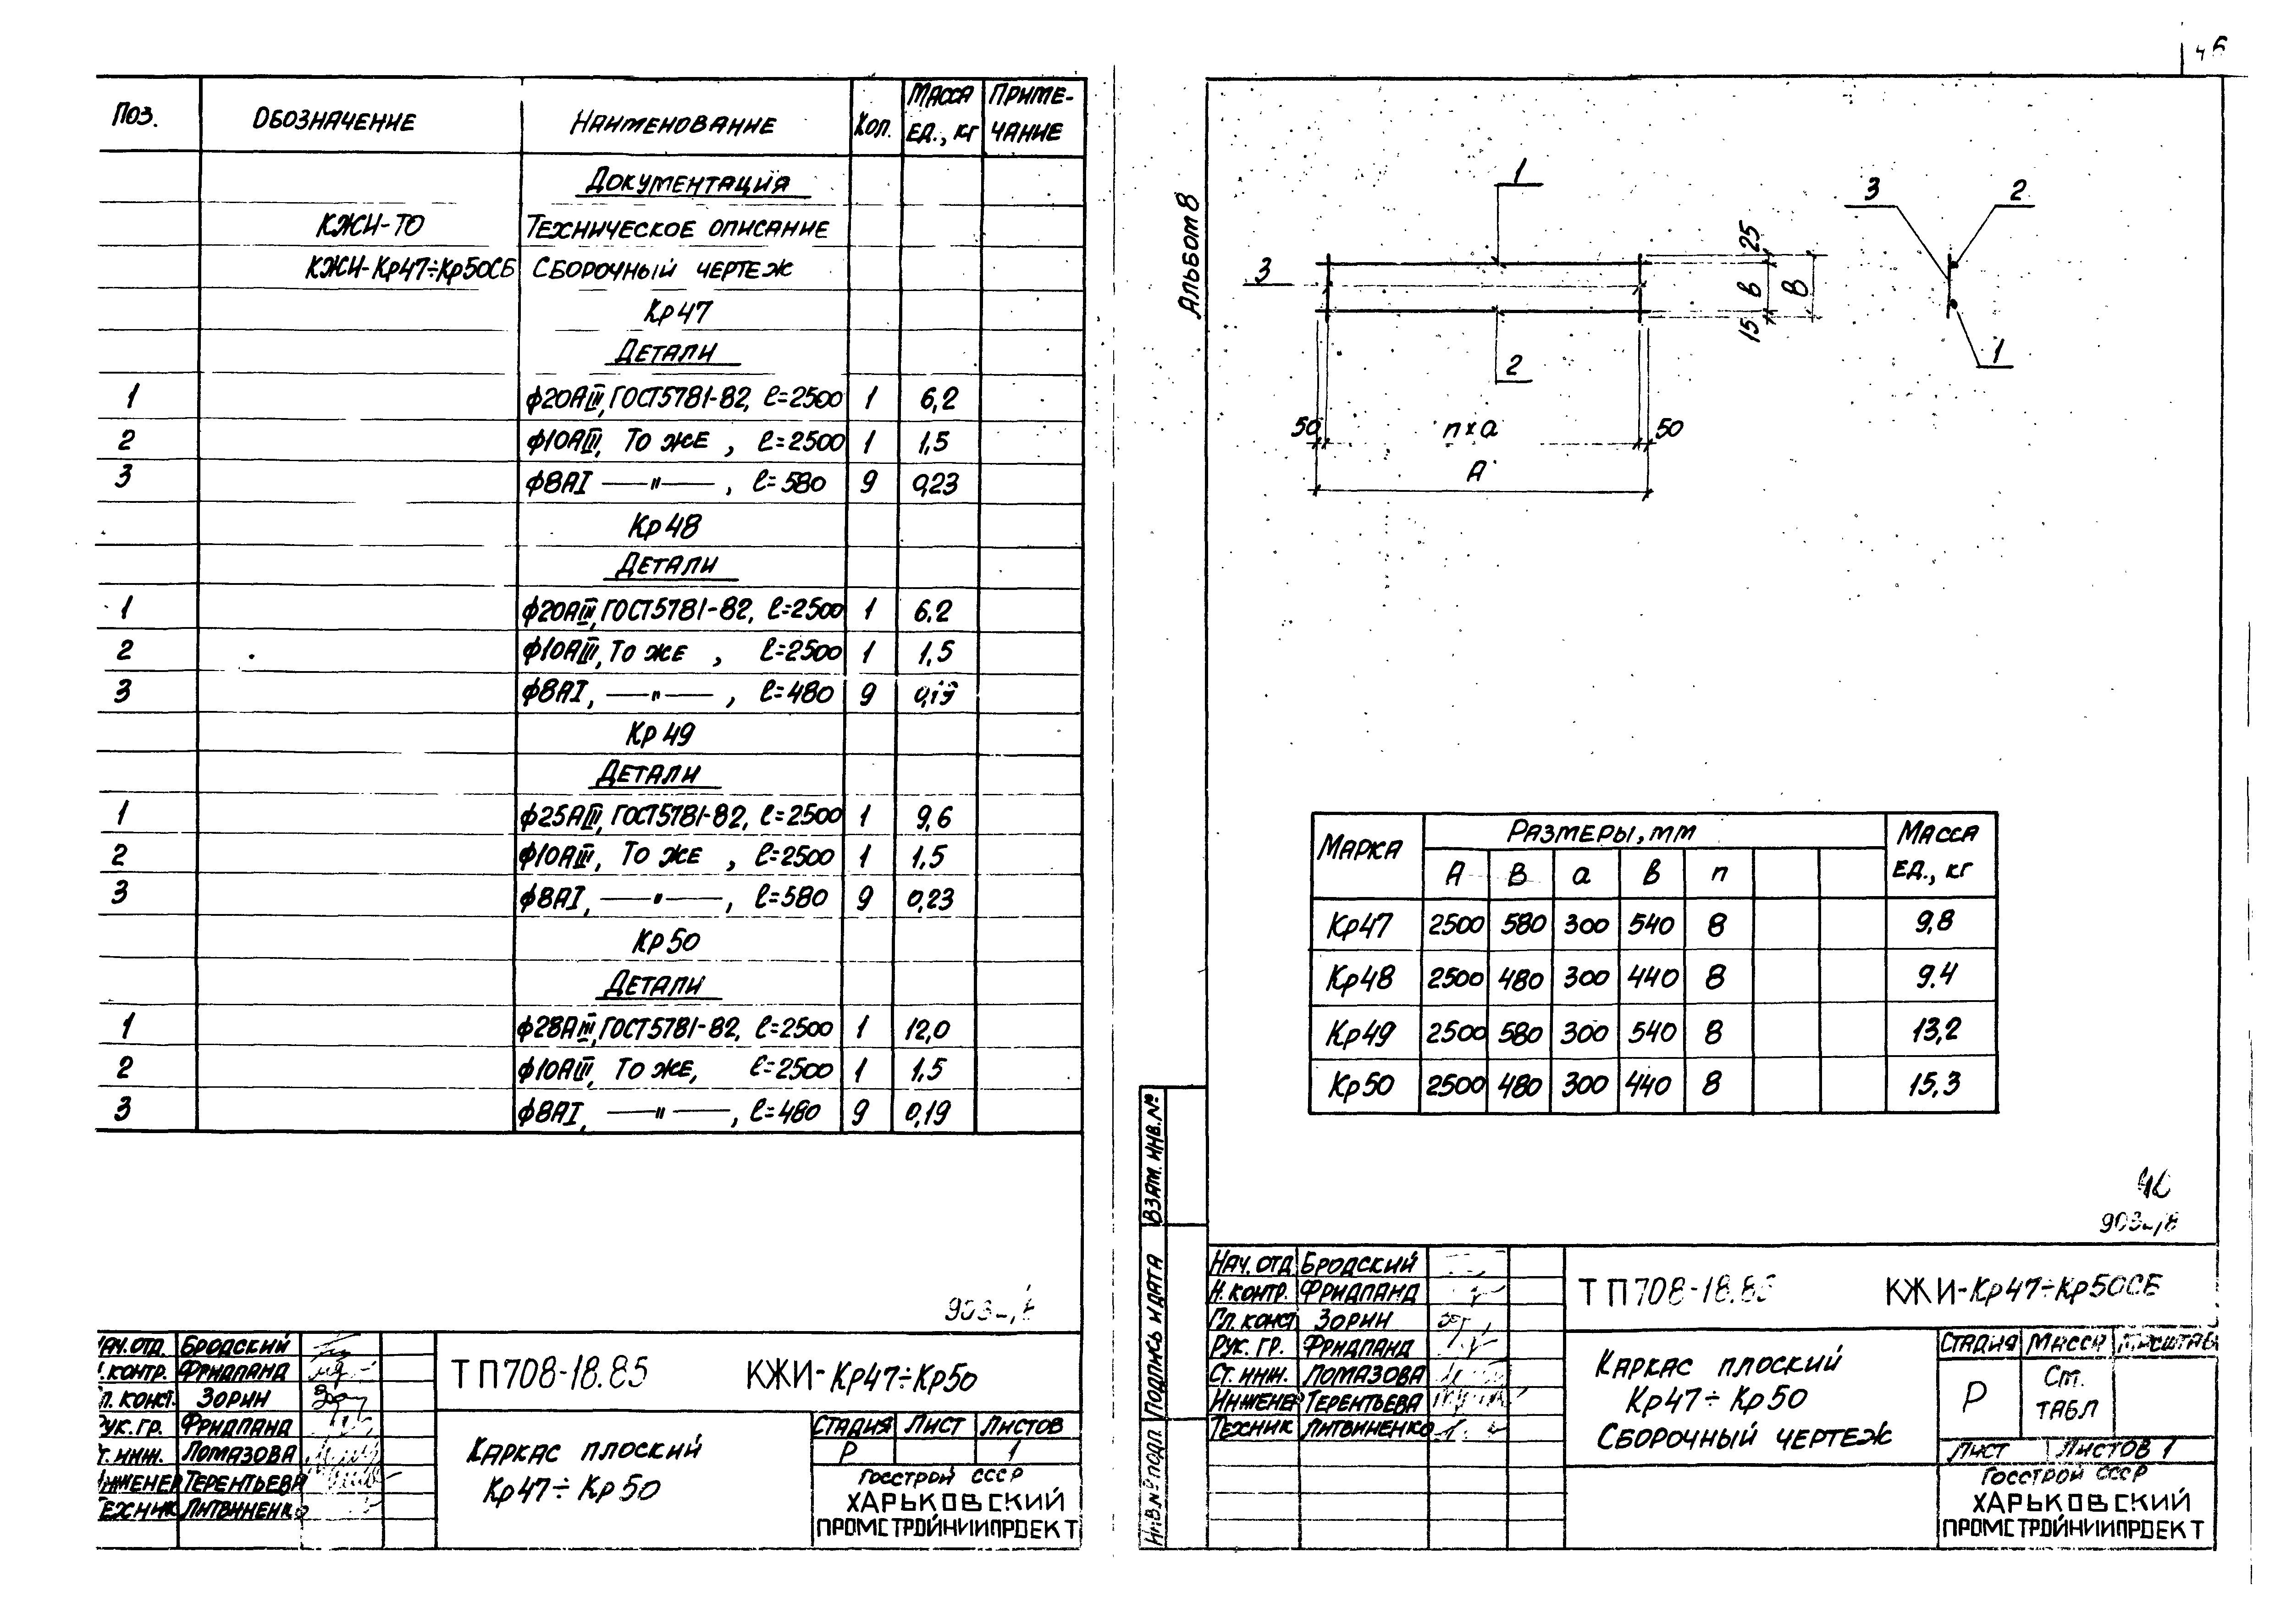 Поз. Обозначение Наименование Кол. Масса ед., кг Примечание
Документация
КЖИ-ТО Техническое описание
КЖИ-Кр47÷Кр50СБ Сборочный чертеж
Кр47
Детали
1 ф20АIII, ГОСТ5781-82, ℓ=2500 1 6,2
2 ф10АIII, То же, ℓ=2500 1 1,5
3 ф8АI —"—, ℓ=580 9 0,23
Кр48
Детали
1 ф20АIII, ГОСТ5781-82, ℓ=2500 1 6,2
2 ф10АIII, То же, ℓ=2500 1 1,5
3 ф8АI, —"—, ℓ=480 9 0,19
Кр49
Детали
1 ф25АIII, ГОСТ5781-82, ℓ=2500 1 9,6
2 ф10АIII, То же, ℓ=2500 1 1,5
3 ф8АI, —"—, ℓ=580 9 0,23
Кр50
Детали
1 ф28АIII, ГОСТ5781-82, ℓ=2500 1 12,0
2 ф10АIII, То же, ℓ=2500 1 1,5
3 ф8АI, —"—, ℓ=480 9 0,19
Нач. отд. Бродский
Н. контр. Фридланд
Гл. конст. Зорин
Рук. гр. Фридланд
Ст. инж. Ломазова
Инженер Терентьева
Техник Литвиненко
ТП708-18.85 КЖИ-Кр47÷Кр50
Каркас плоский
Кр47÷Кр50
Стадия Лист Листов
Р 1
Госстрой СССР
ХАРЬКОВСКИЙ
ПРОМСТРОЙНИИПРОЕКТ
46
Альбом 8
1
3 2
3
25
в В
15
1
2
50 n×a 50
А
Марка Размеры, мм Масса ед., кг
А В а в n
Кр47 2500 580 300 540 8 9,8
Кр48 2500 480 300 440 8 9.4
Кр49 2500 580 300 540 8 13,2
Кр50 2500 480 300 440 8 15,3
Взам. инв. №
Подпись и дата
Инв. № подл.
Нач. отд Бродский
Н. контр. Фридланд
Гл. конст Зорин
Рук. гр. Фридланд
Ст. инж. Ломазова
Инженер Терентьева
Техник Литвиненко
ТП708-18.85 КЖИ-Кр47÷Кр50СБ
Каркас плоский
Кр47÷Кр50
Сборочный чертеж
Стадия Масса Масштаб
Р Ст. табл
Лист Листов 1
Госстрой СССР
ХАРЬКОВСКИЙ
ПРОМСТРОЙНИИПРОЕКТ